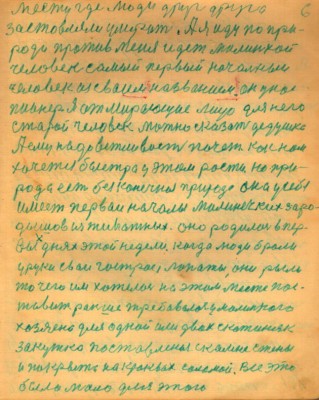 месту где люди друг друга 6
заставляли умират. А я иду по при-
роде против меня идет маленкой
человек самый первый началный
человек из своим названием, он уное
пианер Я отмирающие лицо для него
старой человек можно сказат дедушка
А ему надо вежливост почет как он
хочет быстра у этом рости, но при-
рода ест безконечна природе она у себя
имеет первая началы маленских заро-
дышов из тихатных. оно родилос в пер-
вых днях этой недели, когда люди брали
у руки свои гострец лопаты, они рыли
то чего им хотелос на этом месте пос-
тавит ранше требовалос у малинкого
хозяено для одной или двох скотиняк
закутка поставлены скамие стены
и покрыта на кроквах соломой. Все это
было мало для этого